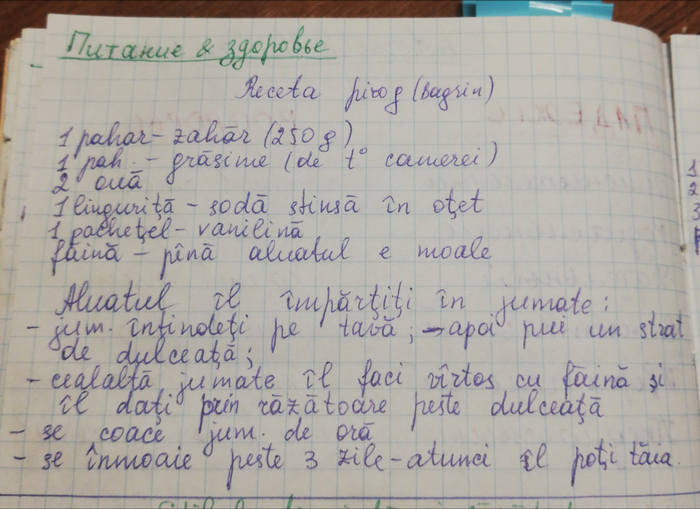 Питание & здоровье
Receta pirog (Bagrin)
1 pahar - zahăr (250 g)
1 pah. - grăsime (de t° camerei)
2 ouă
1 linguriță - sodă stinsă în oțet
1 pachețel - vanilină
făină - pînă aluatul e moale
Aluatul îl împărțiți în jumate:
- jum. întindeți pe tavă; → apoi pui un strat
de dulceață;
- cealaltă jumate îl faci vîrtos cu făină și
îl dați prin răzătoare peste dulceață
- se coace jum. de oră
- se înmoaie peste 3 zile - atunci îl poți tăia.
1
2
3